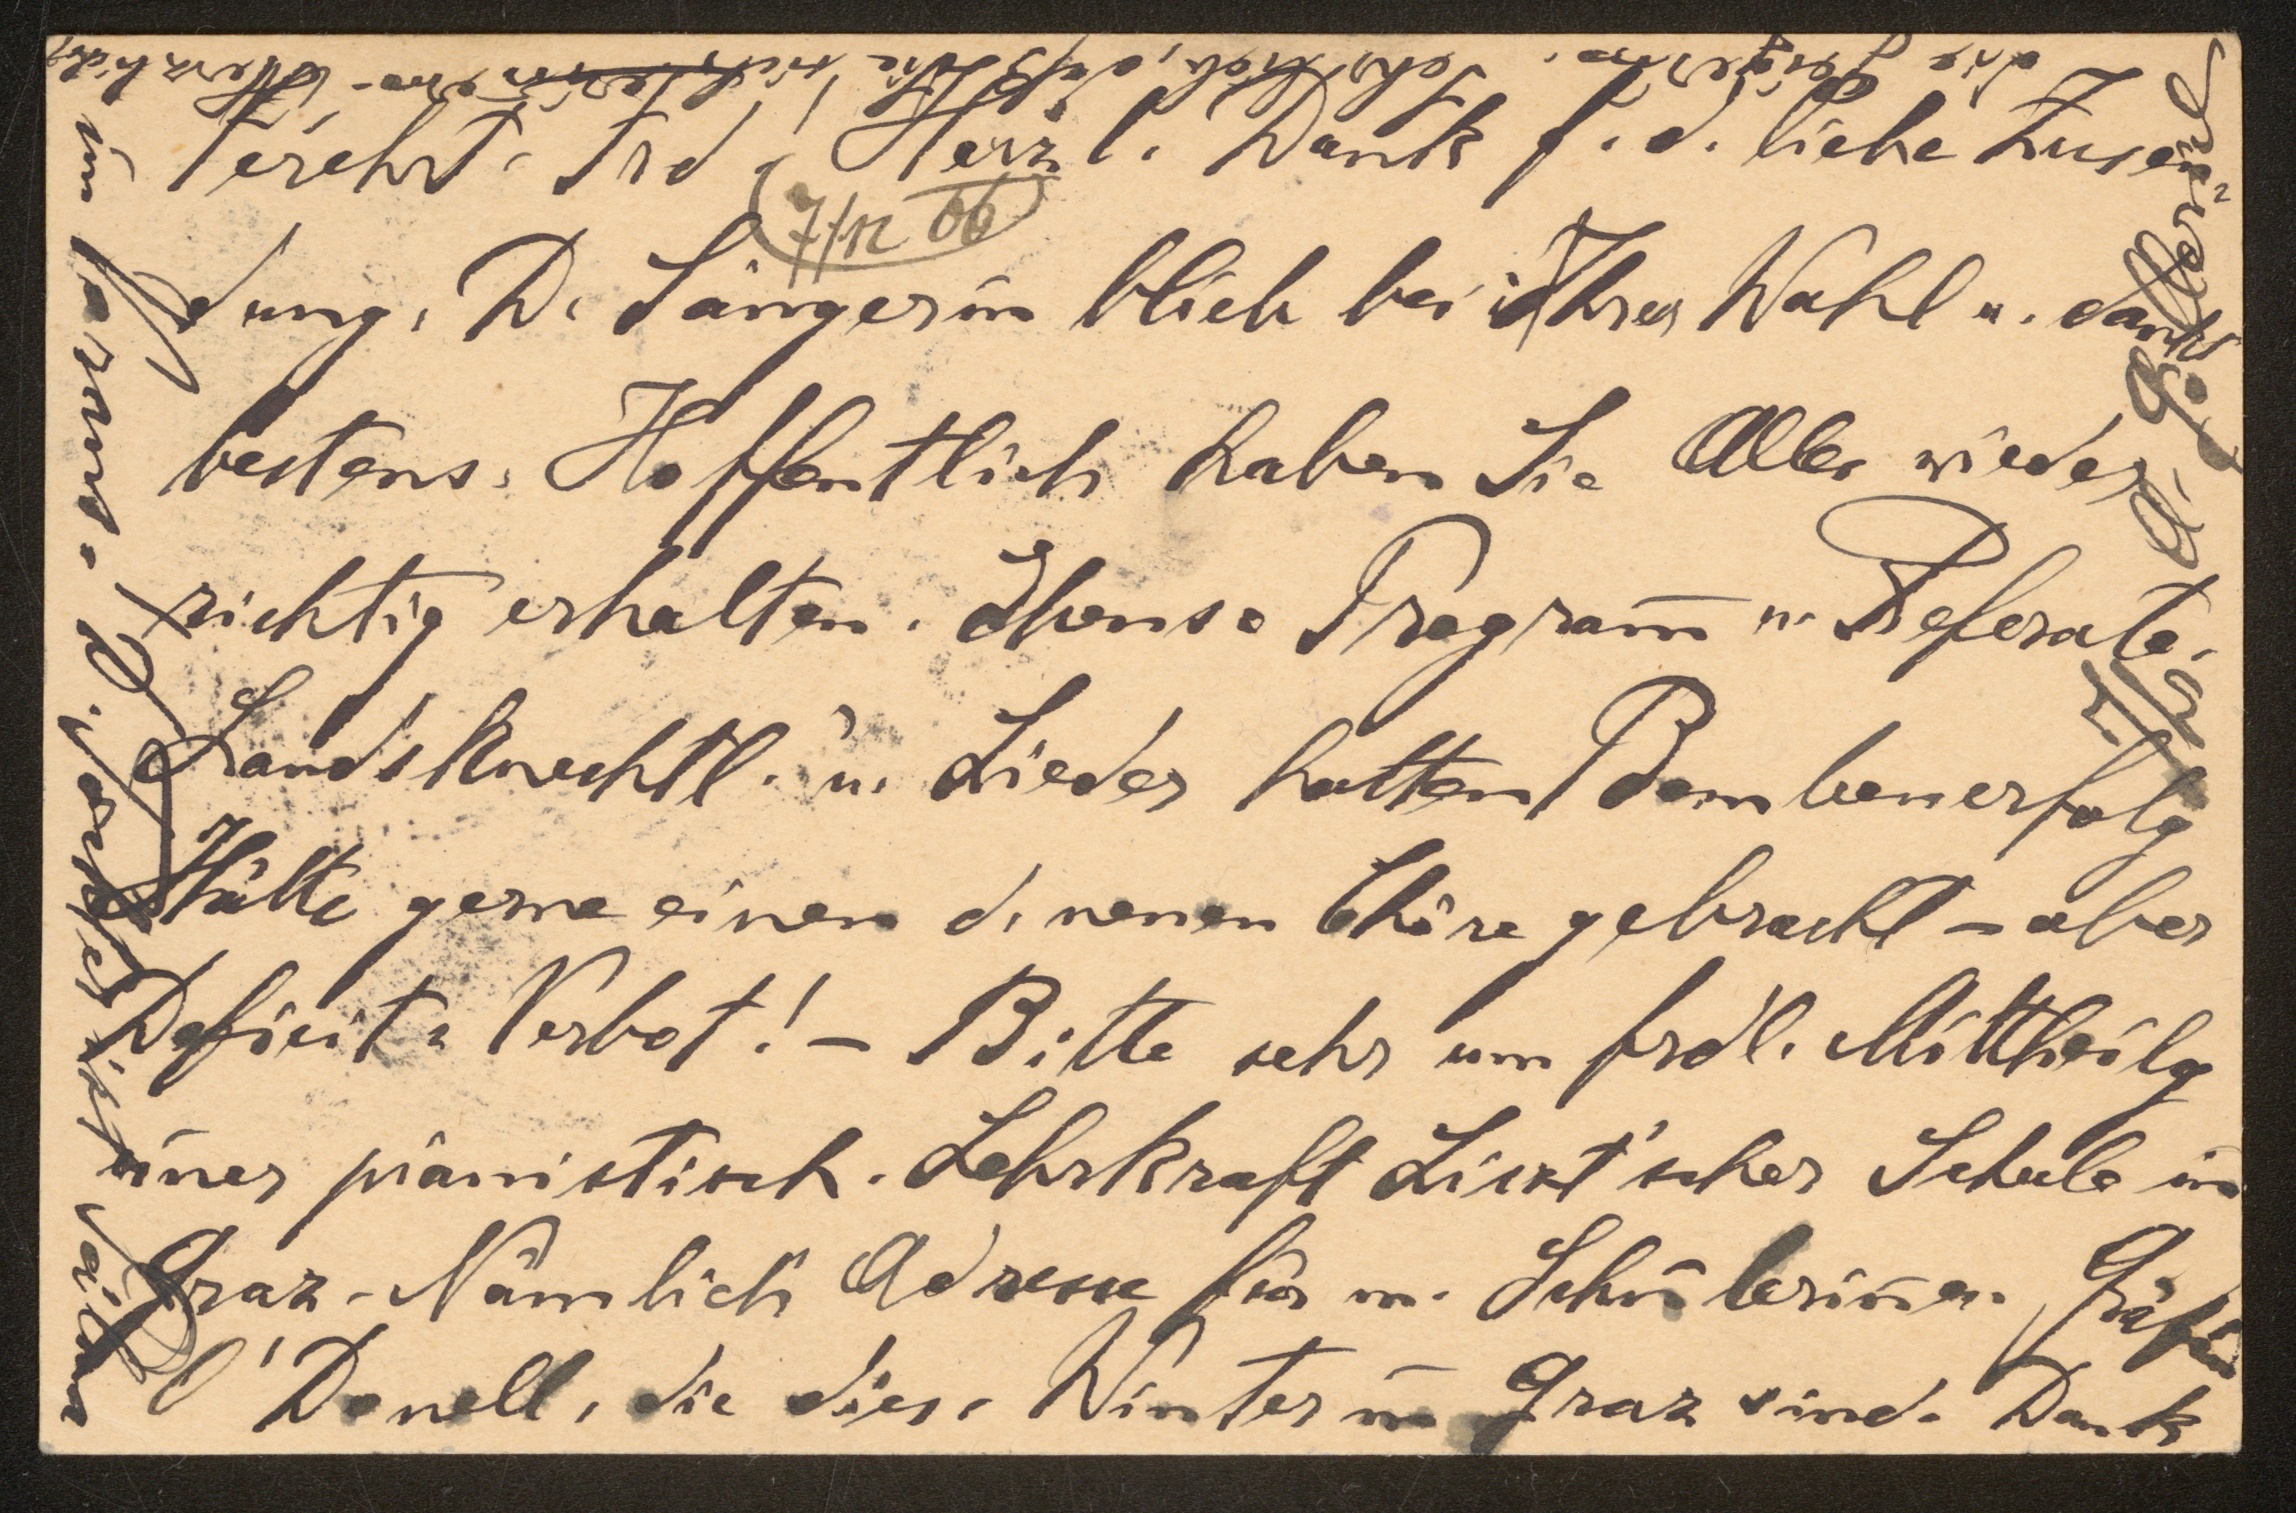 Verehrt. Frd! Herzl. Dank f. d. liebe Zusen-
7/12 06
dung. D. Sängerin blieb bei Ihrer Wahl u. dankt
bestens. Hoffentlich haben Sie Alles wieder
richtig erhalten. Ebenso Program̅ u. Referate.
Landsknechtl. u. Lieder hatten Bombenerfolg
Hätte gerne einen d. neuen Chöre gebracht – aber
Deficit u. Verbot! – Bitte sehr um frdl. Mittheilg
einer pianistisch. Lehrkraft Liszt'scher Schule in
Graz – Nämlich Adresse für m. Schülerin̅en. Gräfin
O'Donell, die dies. Winter in Graz sind. Dank
im voraus. D. Vorkäufer ist Seitz
die Geigerin. Schicklich, daß Sie sich
Herzlichst